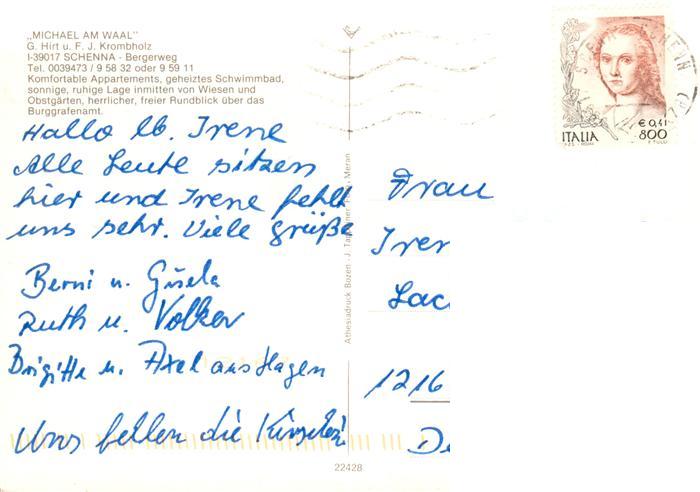 „MICHAEL AM WAAL"
G. Hirt u. F. J. Krombholz
I-39017 SCHENNA - Bergerweg
Tel. 0039473/9 58 32 oder 9 59 11
Komfortable Appartements, geheiztes Schwimmbad,
sonnige, ruhige Lage inmitten von Wiesen und
Obstgärten, herrlicher, freier Rundblick über das
Burggrafenamt.
Hallo lb. Irene
Alle Leute sitzen
hier und Irene fehlt
uns sehr. Viele grüße
Berni u. Gisela
Ruth u. Volker
Brigitte u. Axel aus Hagen
Uns fellen die
Athesiadruck Bozen - J. Meran
22428
ITALIA
€ 0,41
800
Frau
Irer
Lac
1216
De